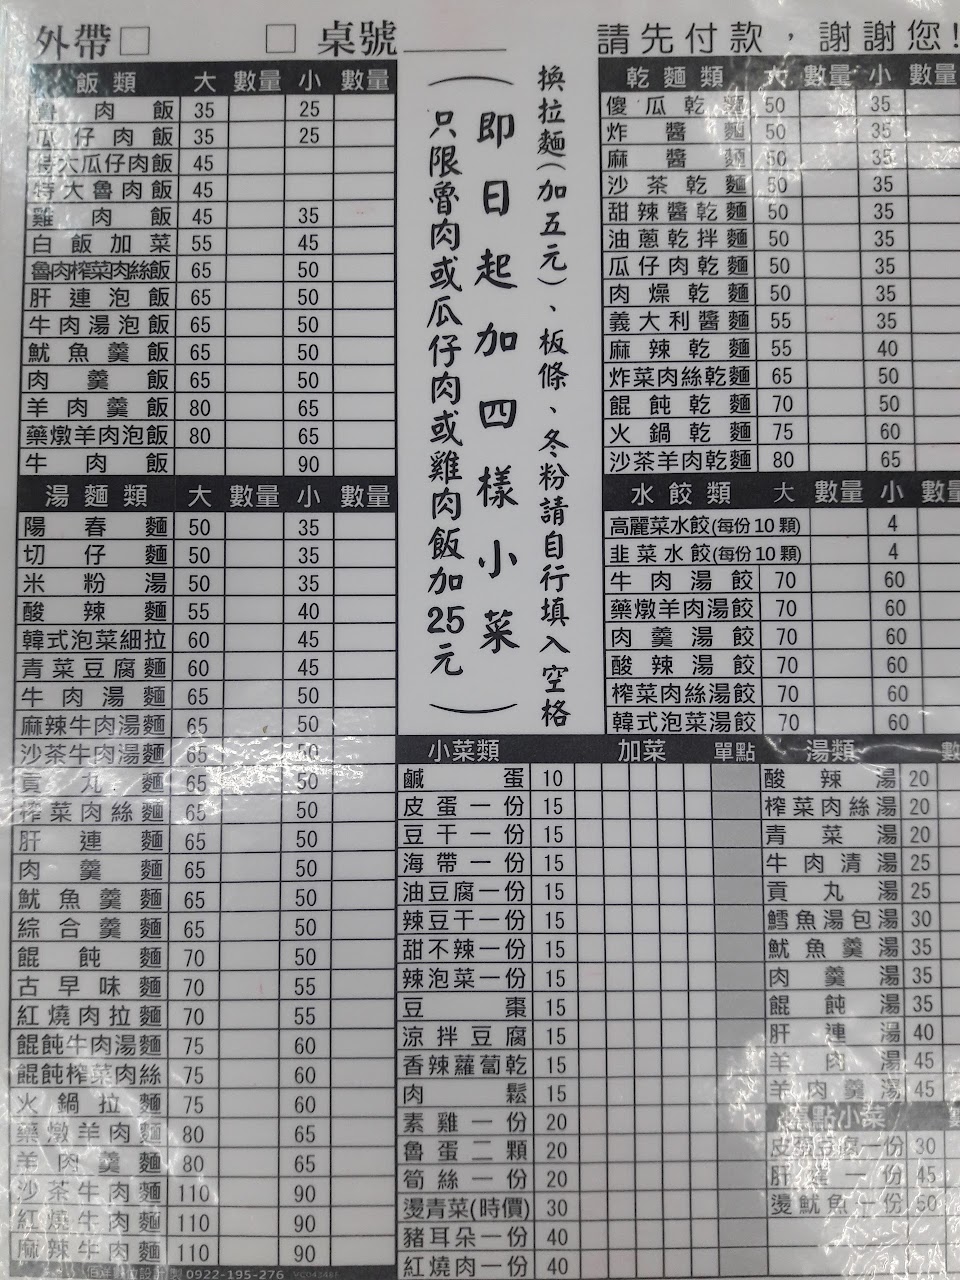 外帶□ □桌號 請先付款，謝謝您!
飯類 大 數量 小 數量
肉飯 35 25
瓜仔肉飯 35 25
特大瓜仔肉飯 45
特大魯肉飯 45
雞肉飯 45 35
白飯加菜 55 45
魯肉榨菜肉絲飯 65 50
肝連泡飯 65 50
牛肉湯泡飯 65 50
魷魚羹飯 65 50
肉羹飯 65 50
羊肉羹飯 80 65
藥燉羊肉泡飯 80 65
牛肉飯 90
湯麵類 大 數量 小 數量
陽春麵 50 35
切仔麵 50 35
米粉湯 50 35
酸辣麵 55 40
韓式泡菜細拉 60 45
青菜豆腐麵 60 45
牛肉湯麵 65 50
麻辣牛肉湯麵 65 50
沙茶牛肉湯麵 65 50
貢丸麵 65 50
榨菜肉絲麵 65 50
肝連麵 65 50
肉羹麵 65 50
魷魚羹麵 65 50
綜合羹麵 65 50
餛飩麵 70 50
古早味麵 70 55
紅燒肉拉麵 70 55
餛飩牛肉湯麵 75 60
餛飩榨菜肉絲 75 60
火鍋拉麵 75 60
藥燉羊肉麵 80 65
羊肉羹麵 80 65
沙茶牛肉麵 110 90
紅燒牛肉麵 110 90
麻辣牛肉麵 110 90
0922-195-276
換拉麵(加五元)、板條、冬粉請自行填入空格
(即日起加四樣小菜
只限魯肉或瓜仔肉或雞肉飯加25元)
乾麵類 大 數量 小 數量
傻瓜乾麵 50 35
炸醬麵 50 35
麻醬麵 50 35
沙茶乾麵 50 35
甜辣醬乾麵 50 35
油蔥乾拌麵 50 35
瓜仔肉乾麵 50 35
肉燥乾麵 50 35
義大利醬麵 55 35
麻辣乾麵 55 40
炸菜肉絲乾麵 65 50
餛飩乾麵 70 50
火鍋乾麵 75 60
沙茶羊肉乾麵 80 65
水餃類 大 數量 小 數量
高麗菜水餃(每份10顆) 4
韭菜水餃(每份10顆) 4
牛肉湯餃 70 60
藥燉羊肉湯餃 70 60
肉羹湯餃 70 60
酸辣湯餃 70 60
榨菜肉絲湯餃 70 60
韓式泡菜湯餃 70 60
小菜類 加菜 單點
鹹蛋 10
皮蛋一份 15
豆干一份 15
海帶一份 15
油豆腐一份 15
辣豆干一份 15
甜不辣一份 15
辣泡菜一份 15
豆棗 15
涼拌豆腐 15
香辣蘿蔔乾 15
肉鬆 15
素雞一份 20
魯蛋二顆 20
筍絲一份 20
燙青菜(時價) 30
豬耳朵一份 40
紅燒肉一份 40
湯類 數
酸辣湯 20
榨菜肉絲湯 20
青菜湯 20
牛肉清湯 25
貢丸湯 25
鱈魚湯包湯 30
魷魚羹湯 35
肉羹湯 35
餛飩湯 35
肝連湯 40
羊肉湯 45
羊肉羹湯 45
單點小菜
皮蛋豆腐一份 30
肝連一份 45
燙魷魚一份 60